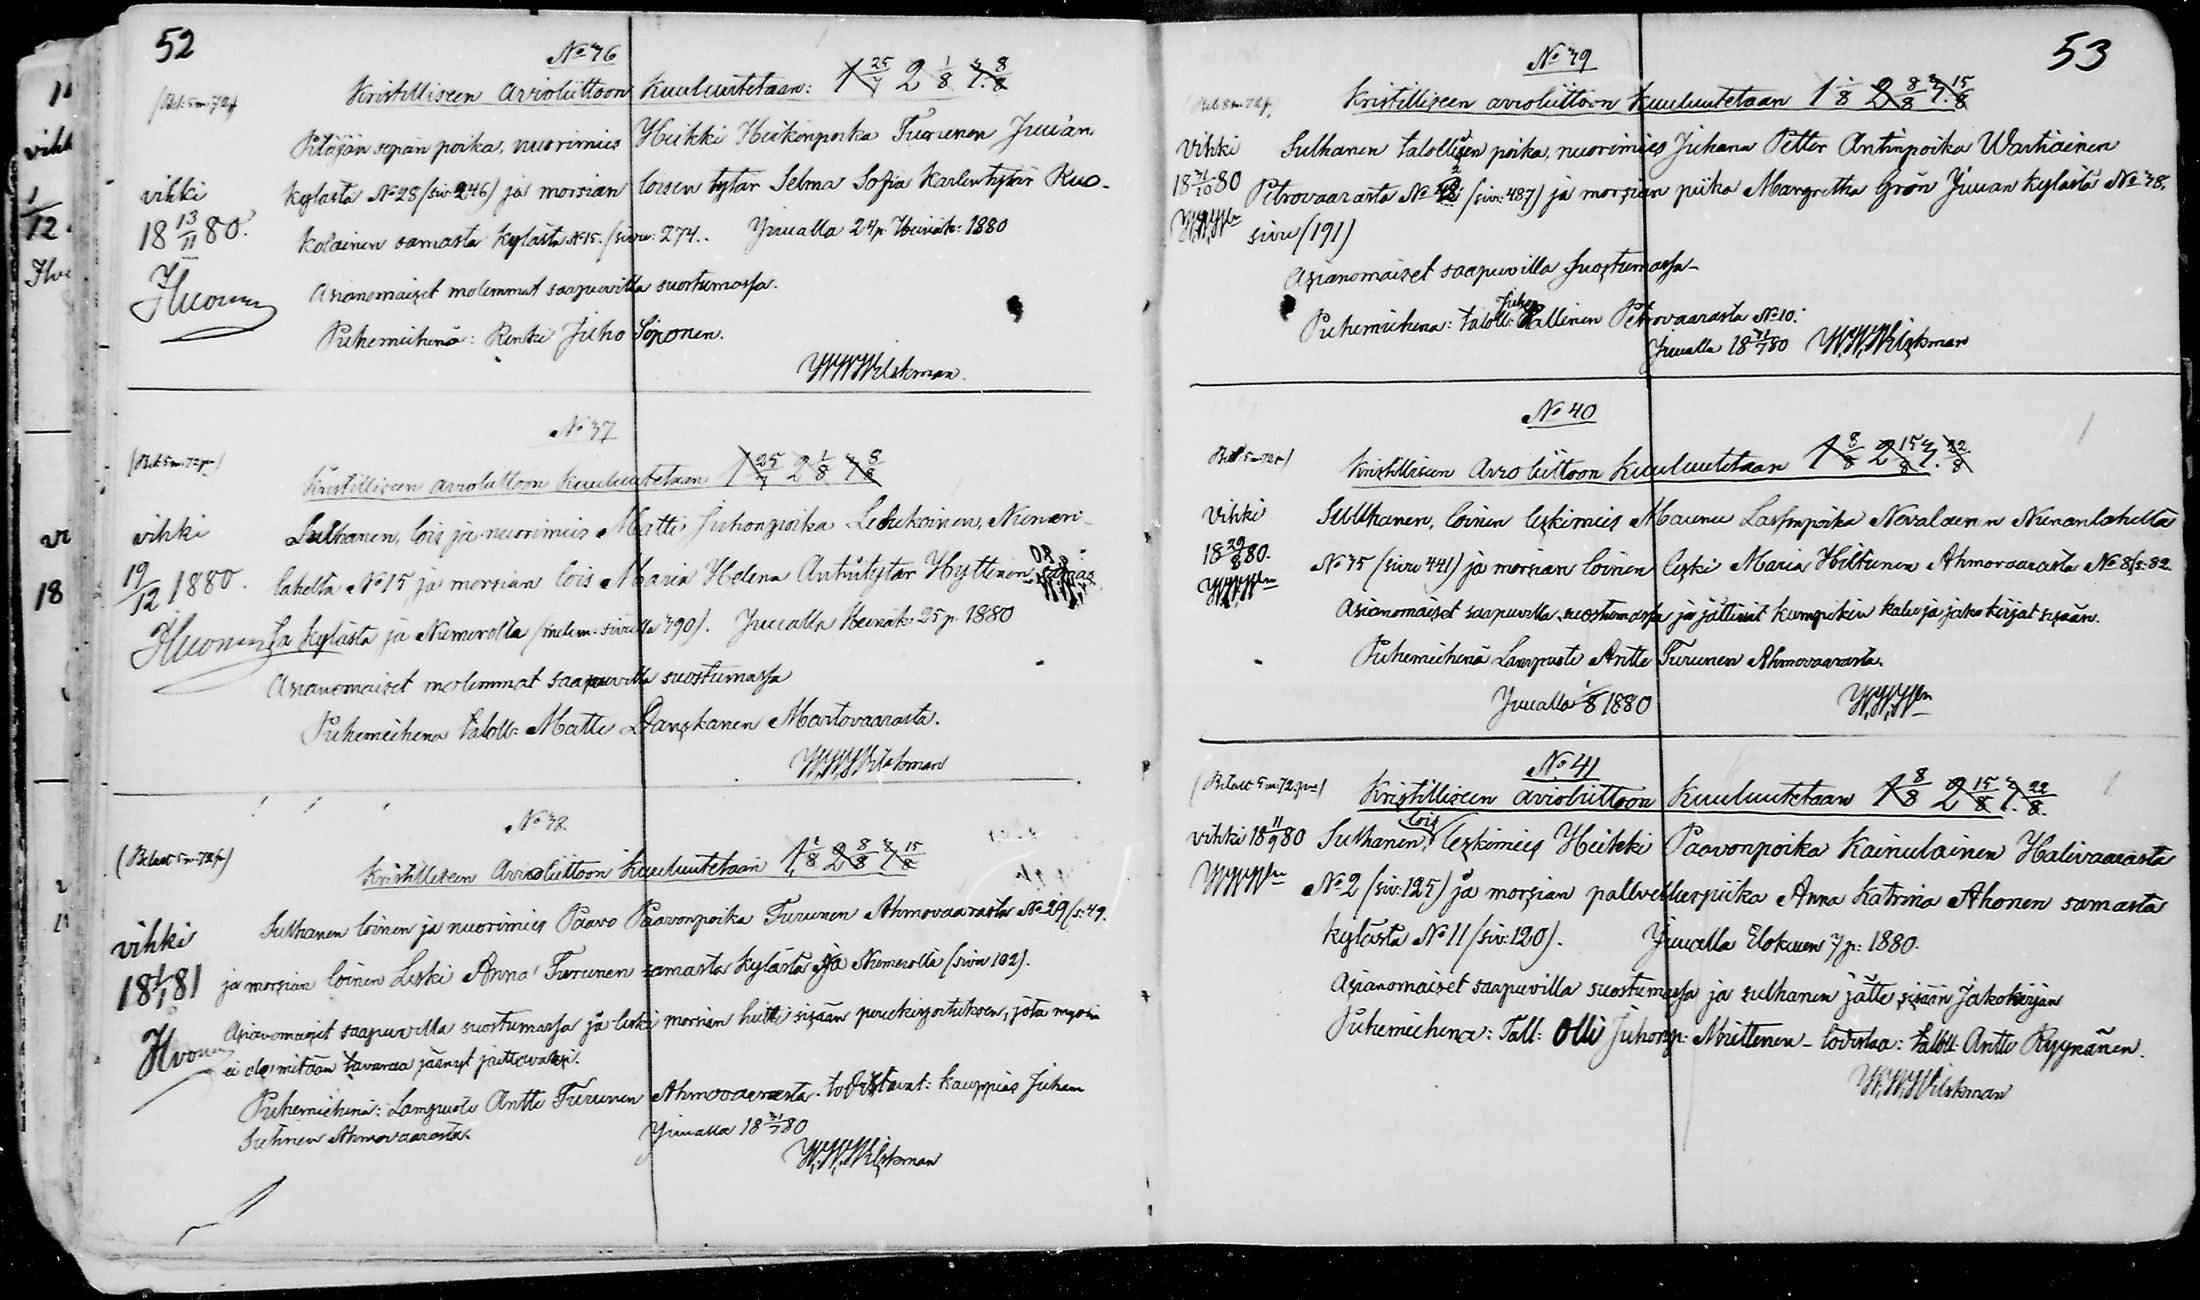 52
No 36
(Bel: 5 m. 72 p)
Kristilliseen avioliittoon kuuluutetaan: 1 25/7 2 1/8 3. 8/8
Pitäjän sepän poika, nuorimies Heikki Heikinpoika Turunen Juuan
vihki
kylästä No 28 (siv: 246) ja morsian loisen tytär Selma Sofia Kaarlentytär Ruo-
18 13/11 80.
kolainen samasta kylästä No 15. (sivu: 274.. Juualla 24 p. Heinäk: 1880
Asianomaiset molemmat saapuvilla suostumassa.
Puhemiehenä: Renki Juho Soponen.
W W Wilskman.
No 37
(Bel: 5 m. 72 pn)
Kristilliseen avioliittoon kuuluutetaan 1 25/7 2 1/8 3 8/8
vihki
Sulhanen, lois ja nuorimies Matti Juhonpoika Leükoinen, Nunan-
19/12 1880.
lahelta No 15 ja morsian lois Maria Helena Antintytär Hyttinen
ta kylästä ja Numerolta (molem: sivulla 390). Juualla Heinäk: 25 p. 1880
Asianomaiset molemmat saapuvilla suostumassa
Puhemiehenä taloll: Matti Danskanen Martovaarasta.
W. W. Wilskman
No 38.
(Belast 5 m 72 p)
Kristilliseen Avioliittoon kuuluutetaan 1 1/8 2 8/8 3 15/8
Sulhanen loinen ja nuorimies Paavo Paavonpoika Turunen Ahmovaarasta No 29 (s: 49.
vihki
18 1/1 81
ja morsian loinen Leski Anna Turunen samasta kylästä ja Numerolla (sivu 102).
Asianomaiset saapuvilla suostumassa ja leski morsian heitti sisään perukirjoituksen, jota myöten
ei ole mitään tavaraa jäänyt jaettavaksi.
Puhemiehenä: Lampuoti Antti Turunen Ahmovaarasta. todistavat: kauppias Juhan
Suhnen Ahmovaarasta.
Juualla 18 31/7 80
W. W. Wilskman
53
No 39
Kristilliseen avioliittoon kuuluutetaan 1 1/8 2 8/8 3. 15/8
vihki
Sulhanen talollisen poika, nuorimies Juhana Petter Antinpoika Wartiainen
18 31/10 80
Petrovaarasta No 2 (siv: 487) ja morsian piika Margretha Grön Juuan kylästä No 38.
sivu (191)
Asianomaiset saapuvilla suostumassa-
Puhemiehenä: taloll: Juho Pallinen Petrovaarasta No 10.
Juualla 18 31/7 80 W. W. Wilskman
No 40
Bel 5 m 72 p)
Kristilliseen Avioliittoon kuuluutetaan 1 8/8 2 15/8 3. 22/8
vihki
Sulhanen, loinen leskimies Maunu Lassinpoika Nevalainen Nunanlahelta
18 29/8 80.
No 35 (sivu 441) ja morsian loinen leski Maria Hiltunen Ahmovaarasta No 8 (s: 82.
Asianomaiset saapuvilla suostumassa ja jättivät kumpikin kalu ja jakokirjat sisään.
Puhemiehenä Lampuoti Antti Turunen Ahmovaarasta.
Juualla 1/8 1880
No 41
(Belast 5 m: 72. pn)
Kristilliseen avioliittoon kuuluutetaan 1 8/8 2 15/8 3. 22/8.
vihki 18 11/9 80
Sulhanen, lois leskimies Heikki Paavonpoika Kainulainen Halivaarasta
No 2 (siv: 125) ja morsian palveluspiika Anna Katrina Ahonen samasta
kylästä No 11 (siv: 120). Juualla Elokuun 7 p: 1880.
Asianomaiset saapuvilla suostumassa ja sulhanen jätti sisään Jakokirjan
Puhemiehenä: Tall: Olli Juhonp: Miettinen - todistaa: taloll: Antti Ryynänen.
W. W. Wilskman